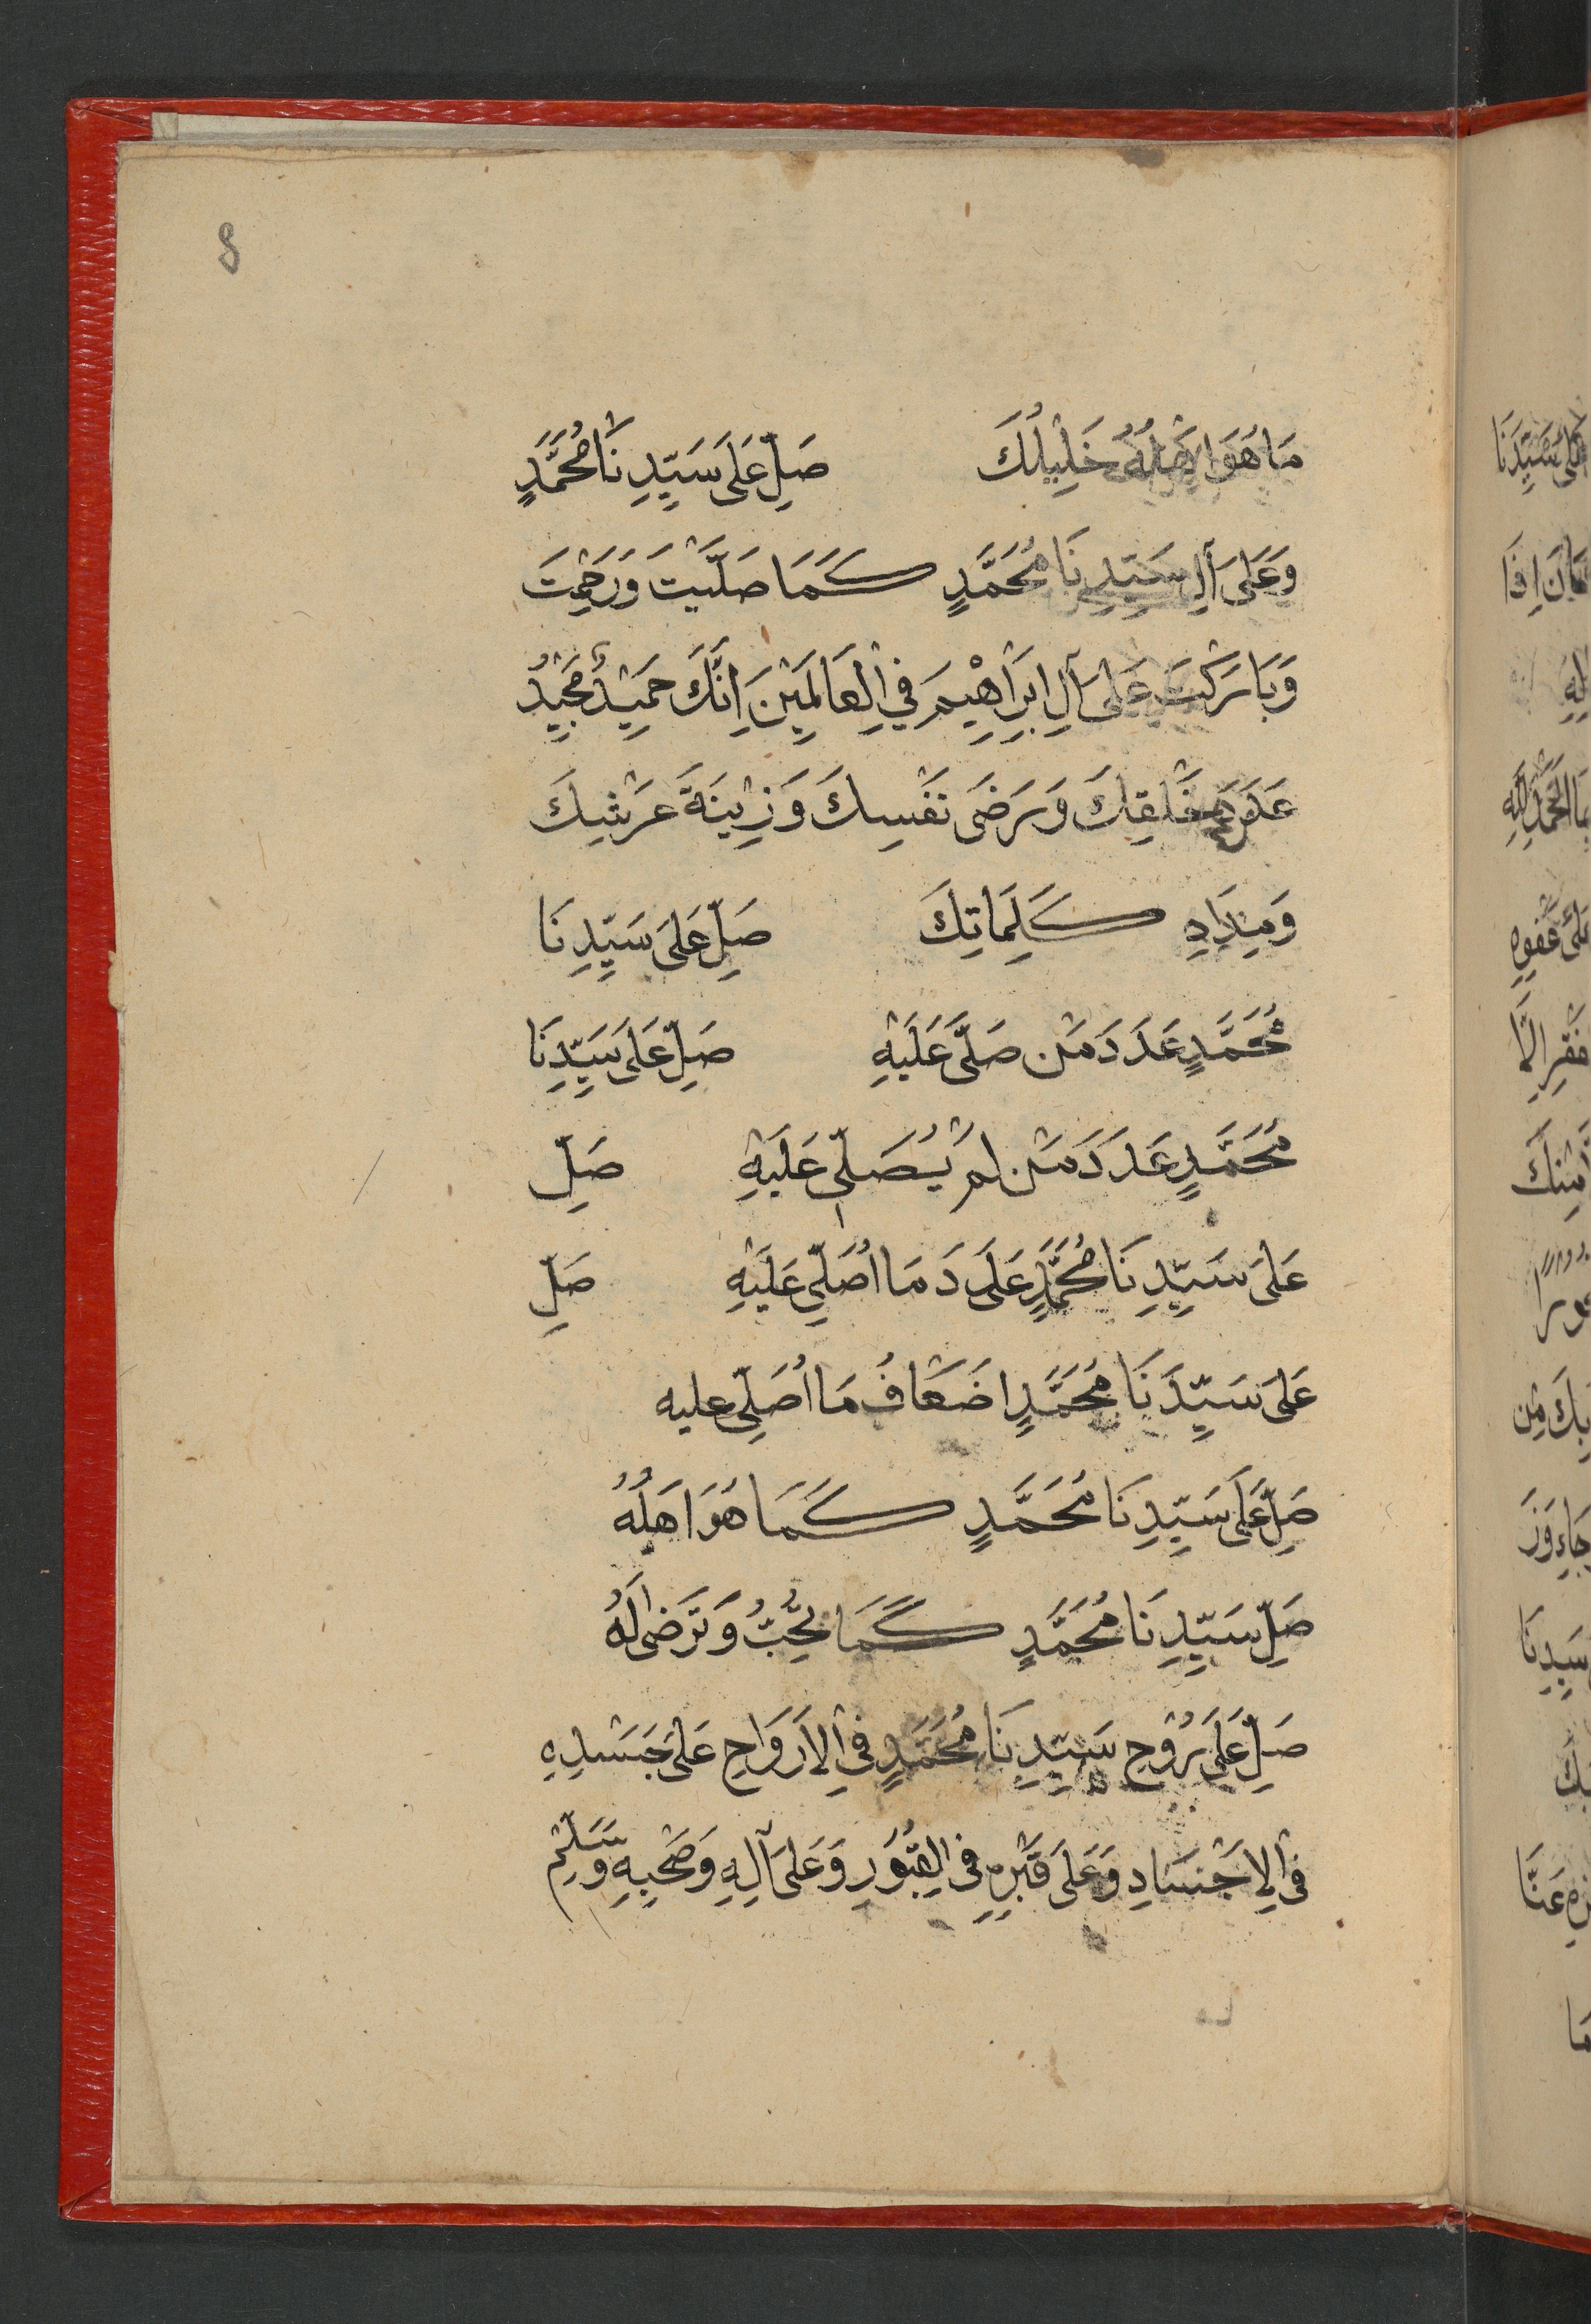 8
مَا هُوَ اَهْلُهُ خَلِيْلُكَ صَلِّ عَلَى سَيِّدِنَا مُحَمَّدٍ
وَعَلَى آلِ سَيِّدِنَا مُحَمَّدٍ كَمَا صَلَّيْتَ وَرَحِمْتَ
وَبَارَكْتَ عَلَى آلِ اِبْرَاهِيْمَ فِي الْعَالَمِيْنَ اِنَّكَ حَمِيْدٌ مَجِيْدٌ
عَدَدَ خَلْقِكَ وَرَضَى نَفْسِكَ وَزِيْنَةَ عَرْشِكَ
وَمِدَادِ كَلِمَاتِكَ صَلِّ عَلَى سَيِّدِنَا
مُحَمَّدٍ عَدَدَ مَنْ صَلَّى عَلَيْهِ صَلِّ عَلَى سَيِّدِنَا
مُحَمَّدٍ عَدَدَ مَنْ لَمْ يُصَلِّى عَلَيْهِ صَلِّ
عَلَى سَيِّدِنَا مُحَمَّدٍ عَدَدَ مَا اُصَلِّي عَلَيْهِ صَلِّ
عَلَى سَيِّدِنَا مُحَمَّدٍ اَضْعَافُ مَا اُصَلِّى عليه
صَلِّ عَلَى سَيِّدِنَا مُحَمَّدٍ كَمَا هُوَ اَهْلُهُ
صَلِّ سَيِّدِنَا مُحَمَّدٍ كَمَا تُحِبُّ وَتَرْضَى لَهُ
صَلِّ عَلَى رُوْحِ سَيِّدِنَا مُحَمَّدٍ فِي الْاَرْوَاحِ عَلَى جَسَدِهِ
فِي الْاَجْسَادِ وَعَلَى قَبْرِهِ فِي الْقُبُوْرِ وَعَلَى آلِهِ وَصَحْبِهِ وَسَلِّمْ